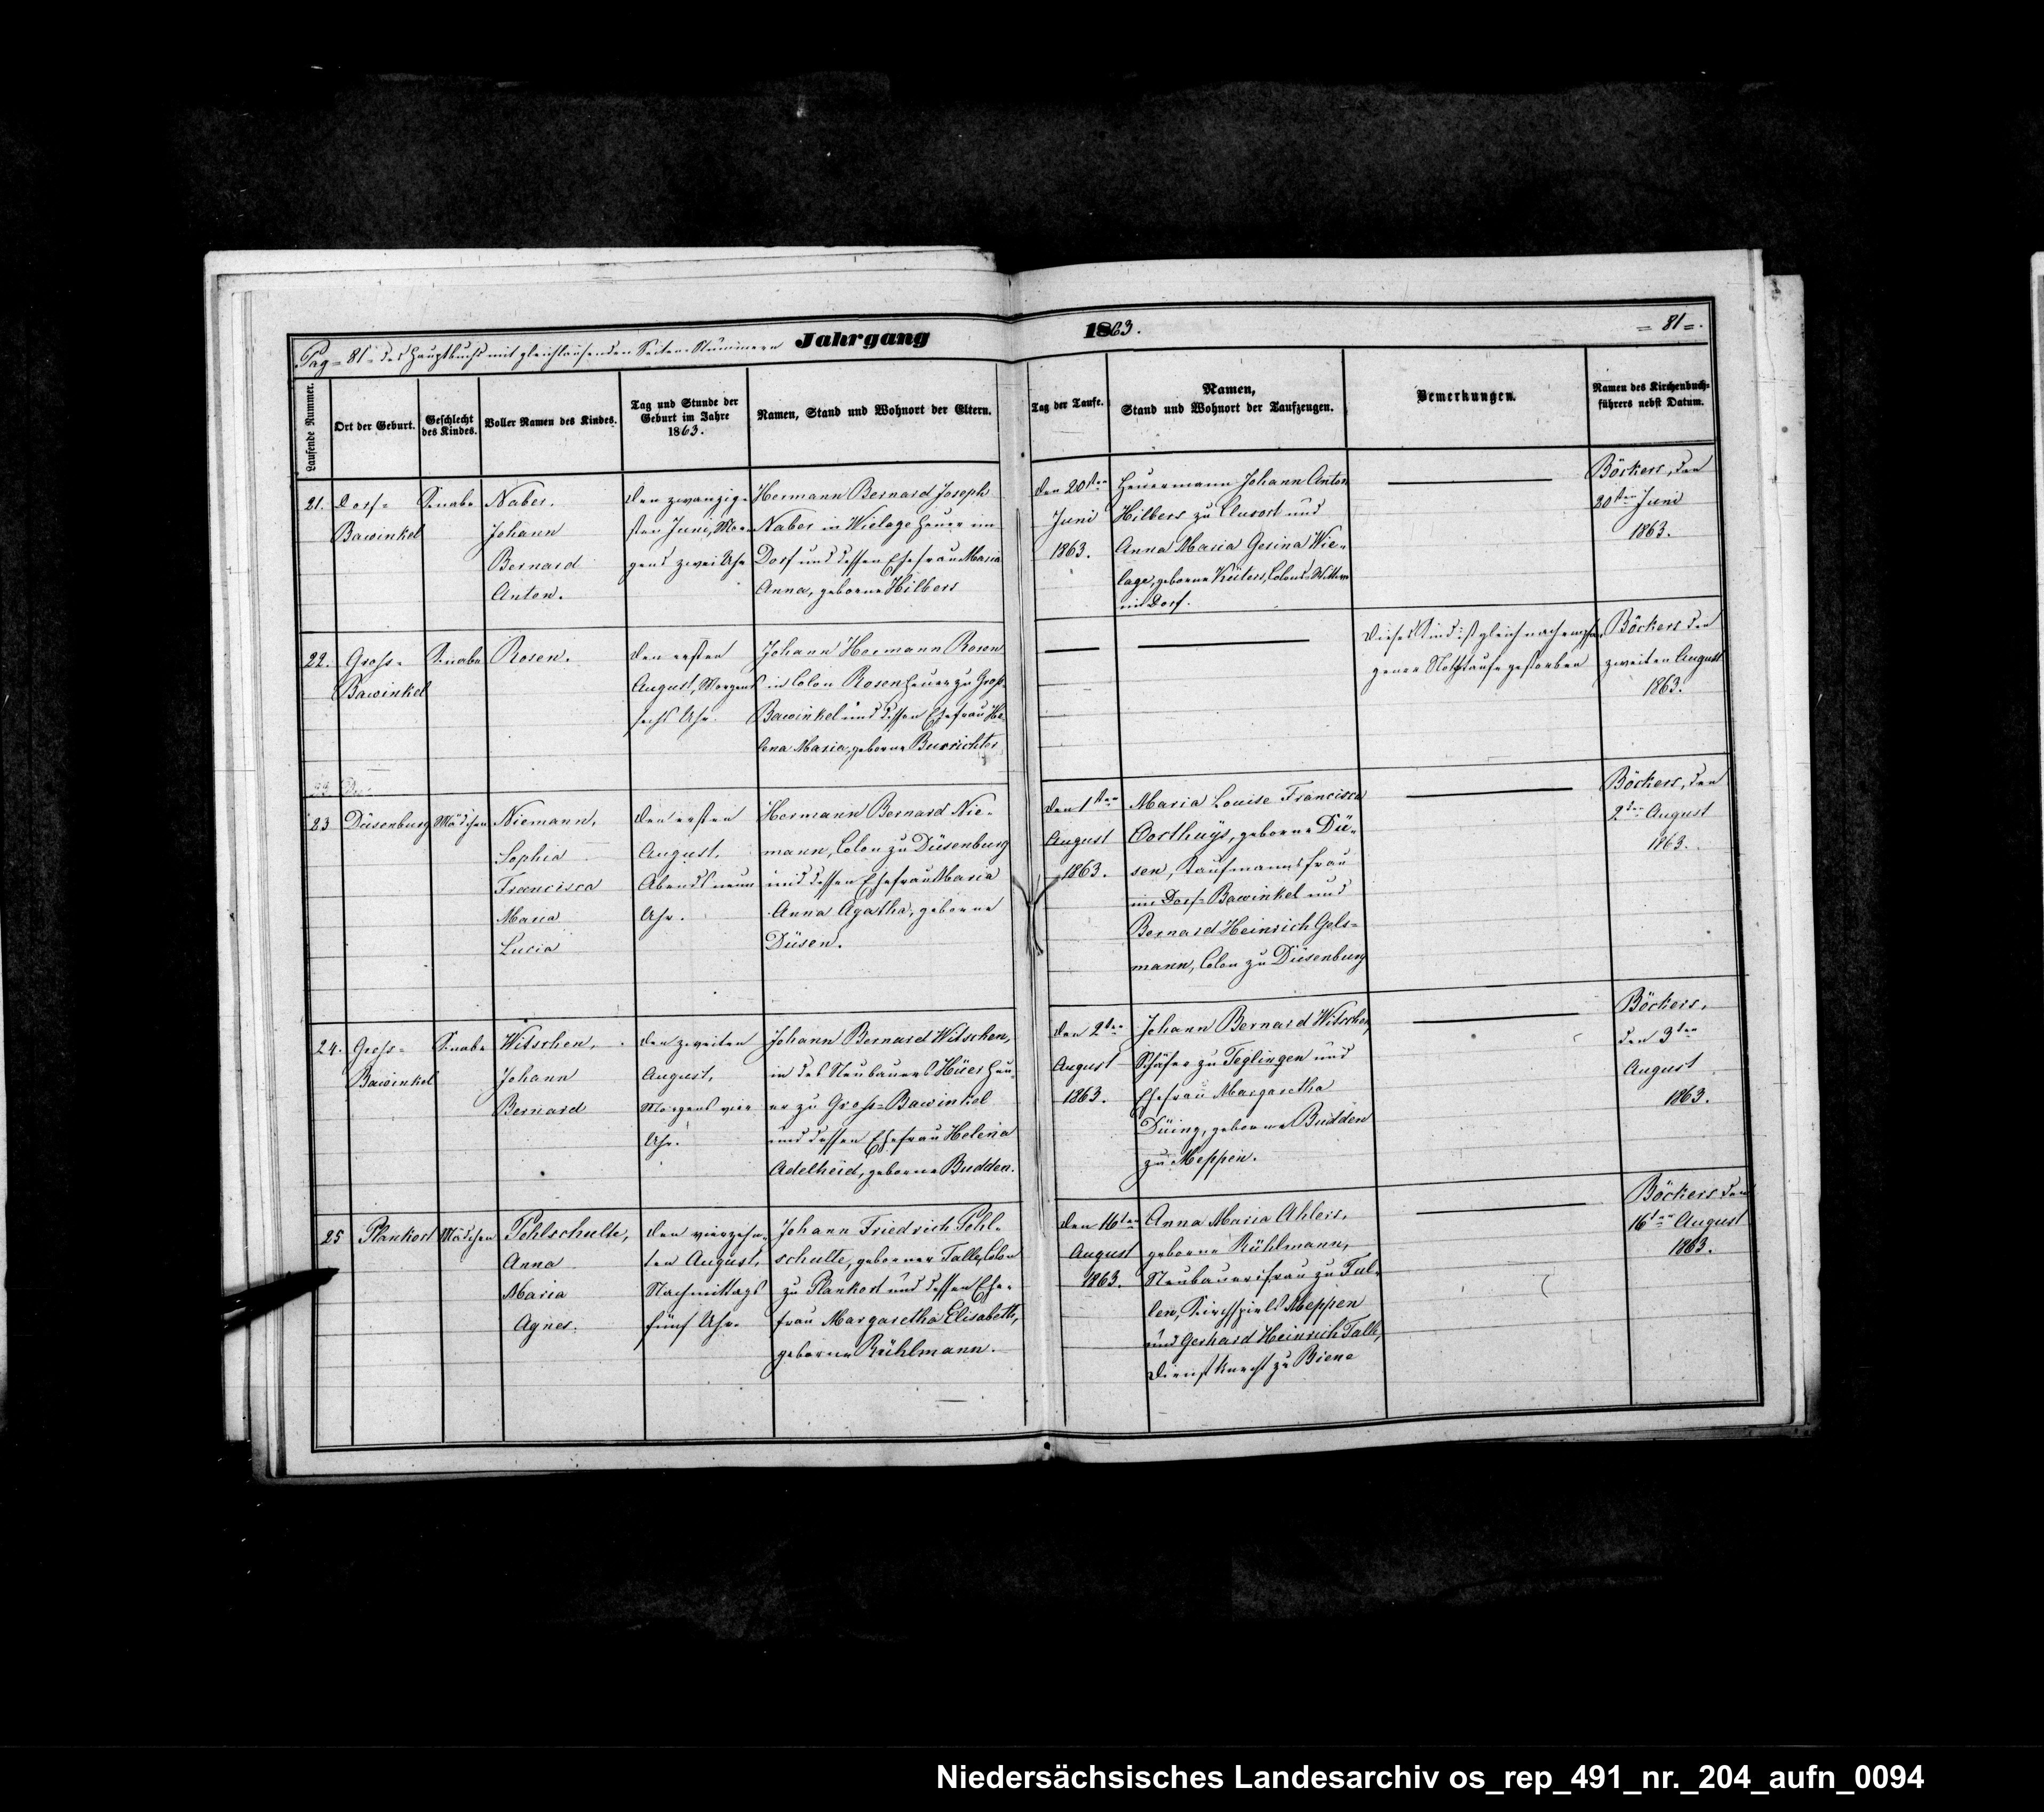 Pag = 81 = des Hauptbuchs mit gleichlaufenden Seiten-Nummern
Jahrgang
1863.
= 81 =.
Laufende Nummer.
Ort der Geburt.
Geschlecht
des Kindes.
Voller Namen des Kindes.
Tag und Stunde der
Geburt im Jahre
1863.
Namen, Stand und Wohnort der Eltern.
Tag der Taufe.
Namen,
Stand und Wohnort der Taufzeugen.
Bemerkungen.
Namen des Kirchenbuch-
führers nebst Datum.
21.
Dorf-
Bawinkel
Knabe
Naber.
Johann
Bernard
Anton.
den zwanzig-
sten Juni, Mor-
gens zwei Uhr
Hermann Bernard Joseph
Naber in Wielage Heuer im
Dorf und dessen Ehefrau Maria
Anna, geborne Hilbers
den 20sten
Juni
1863.
Heuermann Johann Anton
Hilbers zu Clusort und
Anna Maria Gesina Wie-
lage, geborne Küters, Colons-Wittwe
im Dorf.
Böckers, den
20sten Juni
1863.
22.
Gross-
Bawinkel
Knabe
Rosen.
den ersten
August, Morgens
sechs Uhr.
Johann Hermann Rosen
in Colon Rosen Heuer zu Gross-
Bawinkel und dessen Ehefrau He-
lena Maria, geborne Burrichter
Dieses Kind ist gleich nach empfan-
gener Nothtaufe gestorben
Böckers den
zweiten August
1863.
23
Düsenburg
Mädchen
Niemann,
Sophia
Francisca
Maria
Lucia
den ersten
August,
Abends neun
Uhr.
Hermann Bernard Nie-
mann, Colon zu Düsenburg
und dessen Ehefrau Maria
Anna Agatha, geborne
Düsen.
den 1sten
August
1863.
Maria Louise Francisca
Oorthuys, geborne Dü-
sen, Kaufmannsfrau
im Dorf-Bawinkel und
Bernard Heinrich Gels-
mann, Colon zu Düsenburg
Böckers, den
2ten August
1863.
24.
Gross-
Bawinkel
Knabe
Witschen,
Johann
Bernard
den zweiten
August,
Morgens vier
Uhr.
Johann Bernard Witschen,
in des Neubauers Hüer Heu-
er zu Gross-Bawinkel
und dessen Ehefrau Helena
Adelheid, geborne Budden.
den 2ten
August
1863.
Johann Bernard Witschen,
Schäfer zu Teglingen und
Ehefrau Margaretha
Düing, geborne Budden
zu Meppen.
Böckers,
den 3ten
August
1863.
25
Plankort
Mädchen
Pohlschulte,
Anna
Maria
Agnes.
den vierzehn-
ten August,
Nachmittags
fünf Uhr.
Johann Friedrich Pohl-
schulte, geborner Talle, Colon
zu Plankort und dessen Ehe-
frau Margaretha Elisabeth,
geborne Rühlmann.
den 16ten
August
1863.
Anna Maria Ahlers,
geborne Rühlmann,
Neubauersfrau zu Ful-
len, Kirchspiels Meppen
und Gerhard Heinrich Talle,
Dienstknecht zu Biene
Böckers den
16ten August
1863.
Niedersächsisches Landesarchiv os_rep_491_nr._204_aufn_0094